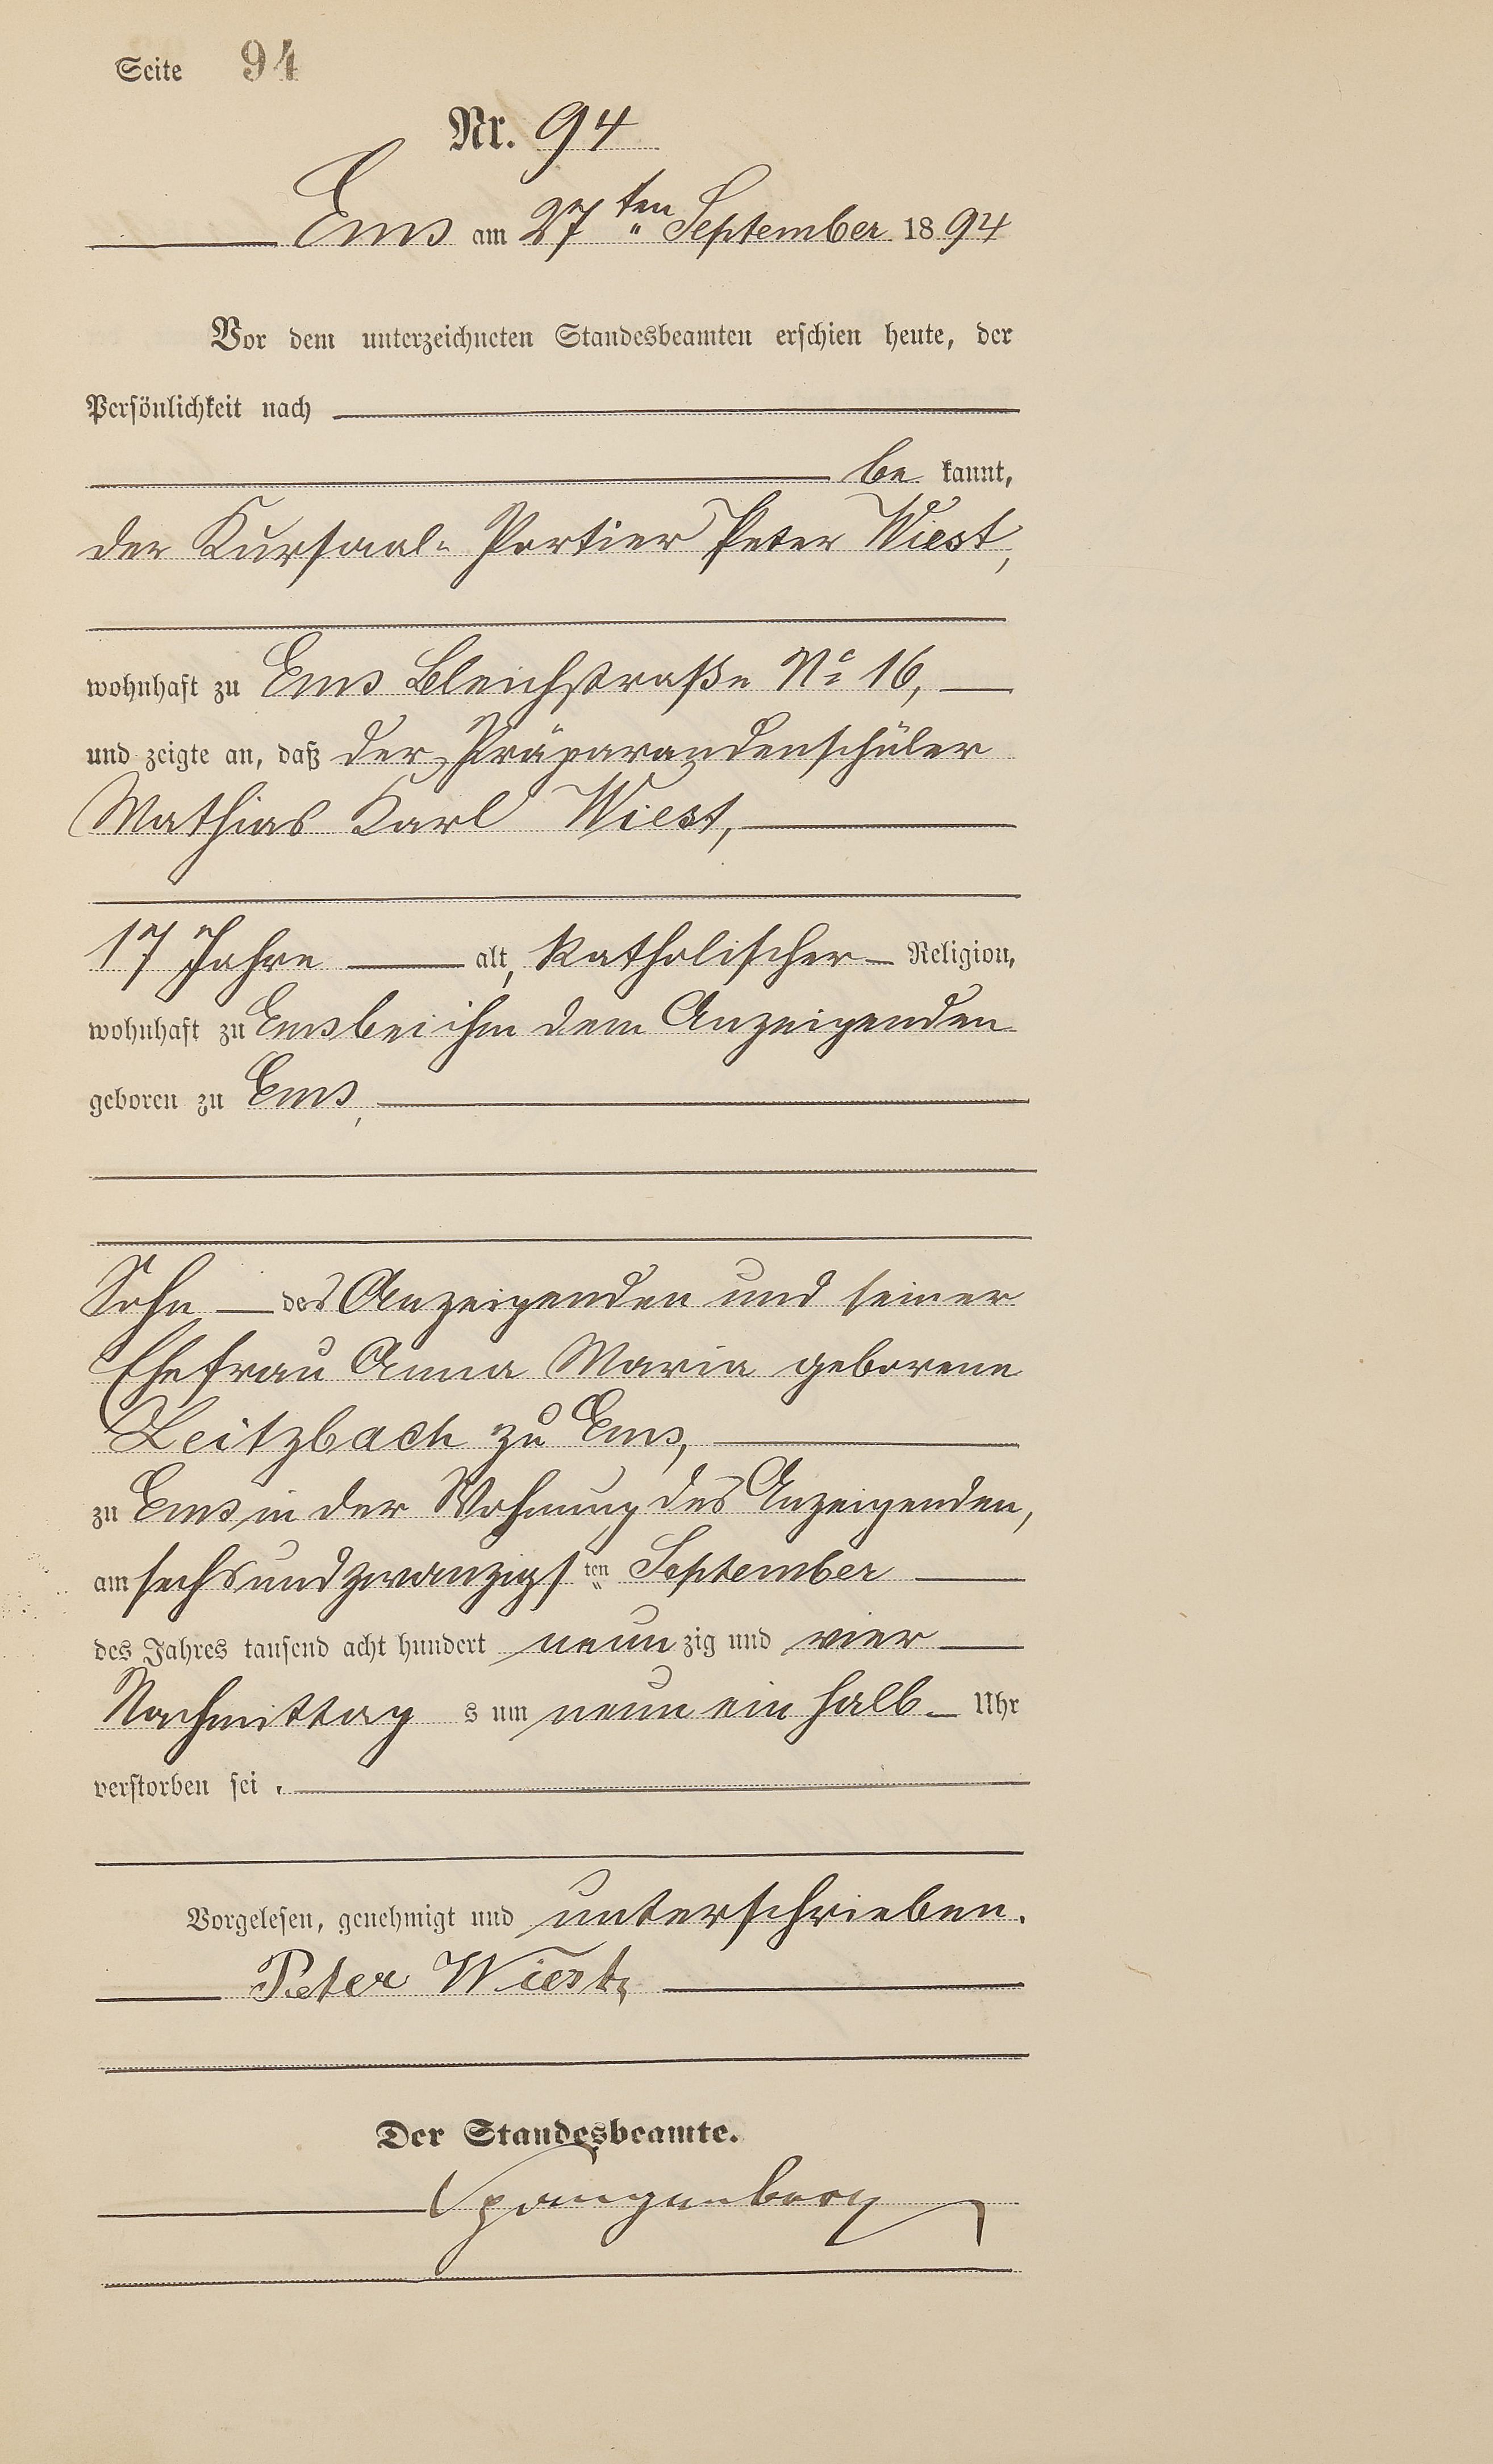 Seite 94
Nr. 94
Ems am 27ten September 1894
Vor dem unterzeichneten Standesbeamten erschien heute, der
Persönlichkeit nach
be kannt,
der Kursaal-Portier Peter Wiest,
wohnhaft zu Ems Bleichstraße No 16,
und zeigte an, daß der Präparandenschüler
Mathias Karl Wiest,
17 Jahre alt, katholischer Religion,
wohnhaft zu Ems bei ihm dem Anzeigenden
geboren zu Ems,
Sohn des Anzeigenden und seiner
Ehefrau Anna Maria geborene
Leitzbach zu Ems,
zu Ems in der Wohnung des Anzeigenden,
am sechsundzwanzigsten September
des Jahres tausend acht hundert neunzig und vier
Nachmittags um neun ein halb Uhr
verstorben sei.
Vorgelesen, genehmigt und unterschrieben.
Peter Wiest
Der Standesbeamte.
Spangenberg